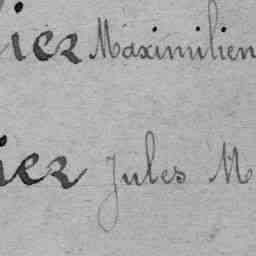 ier Maximilien
ier Jules M